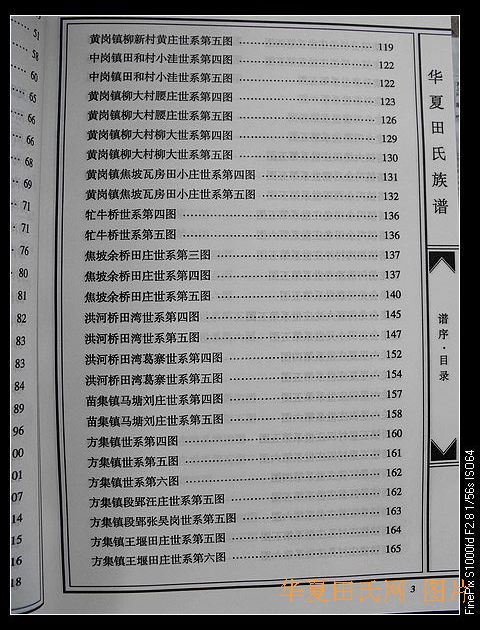 黄岗镇柳新村黄庄世系第五图 119
中岗镇田和村小洼世系第四图 122
中岗镇田和村小洼世系第五图 122
黄岗镇柳大村腰庄世系第四图 123
黄岗镇柳大村腰庄世系第五图 126
黄岗镇柳大村柳大世系第四图 129
黄岗镇柳大村柳大世系第五图 130
黄岗镇焦坡瓦房田小庄世系第四图 131
黄岗镇焦坡瓦房田小庄世系第五图 132
牤牛桥世系第四图 136
牤牛桥世系第五图 136
焦坡余桥田庄世系第三图 137
焦坡余桥田庄世系第四图 137
焦坡余桥田庄世系第五图 140
洪河桥田湾世系第四图 145
洪河桥田湾世系第五图 147
洪河桥田湾葛寨世系第四图 152
洪河桥田湾葛寨世系第五图 154
苗集镇马塘刘庄世系第四图 157
苗集镇马塘刘庄世系第五图 158
方集镇世系第四图 160
方集镇世系第五图 161
方集镇世系第六图 162
方集镇段郢汪庄世系第五图 162
方集镇段郢张吴岗世系第五图 163
方集镇王堰田庄世系第五图 164
方集镇王堰田庄世系第六图 165
华夏田氏族谱
谱序·目录
3
51
58
60
65
66
66
68
69
71
71
76
80
81
82
83
83
84
89
96
00
01
07
14
16
18
华夏田氏网 图片
FinePix S1000fd F2.8 1/56s ISO64